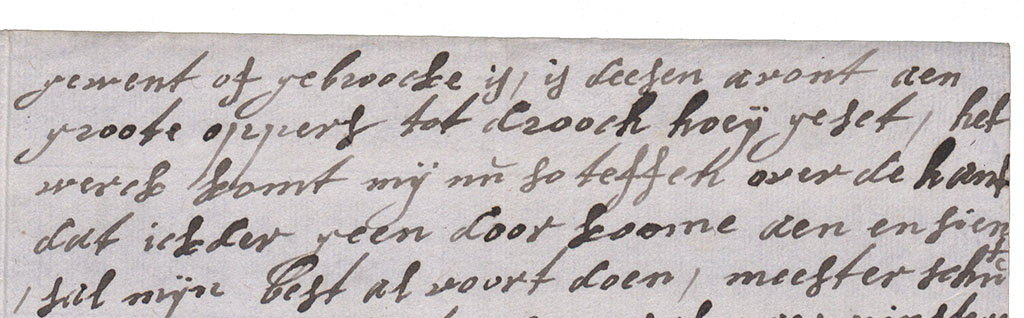 gewent of gebroocke is, is deesen avont aen
groote oppers tot drooch hoeÿ geset, het
werck komt mÿ nŭ so teffen over de hant
dat ick der geen door koome aen en sien
, sal mÿn best al voort doen, meester